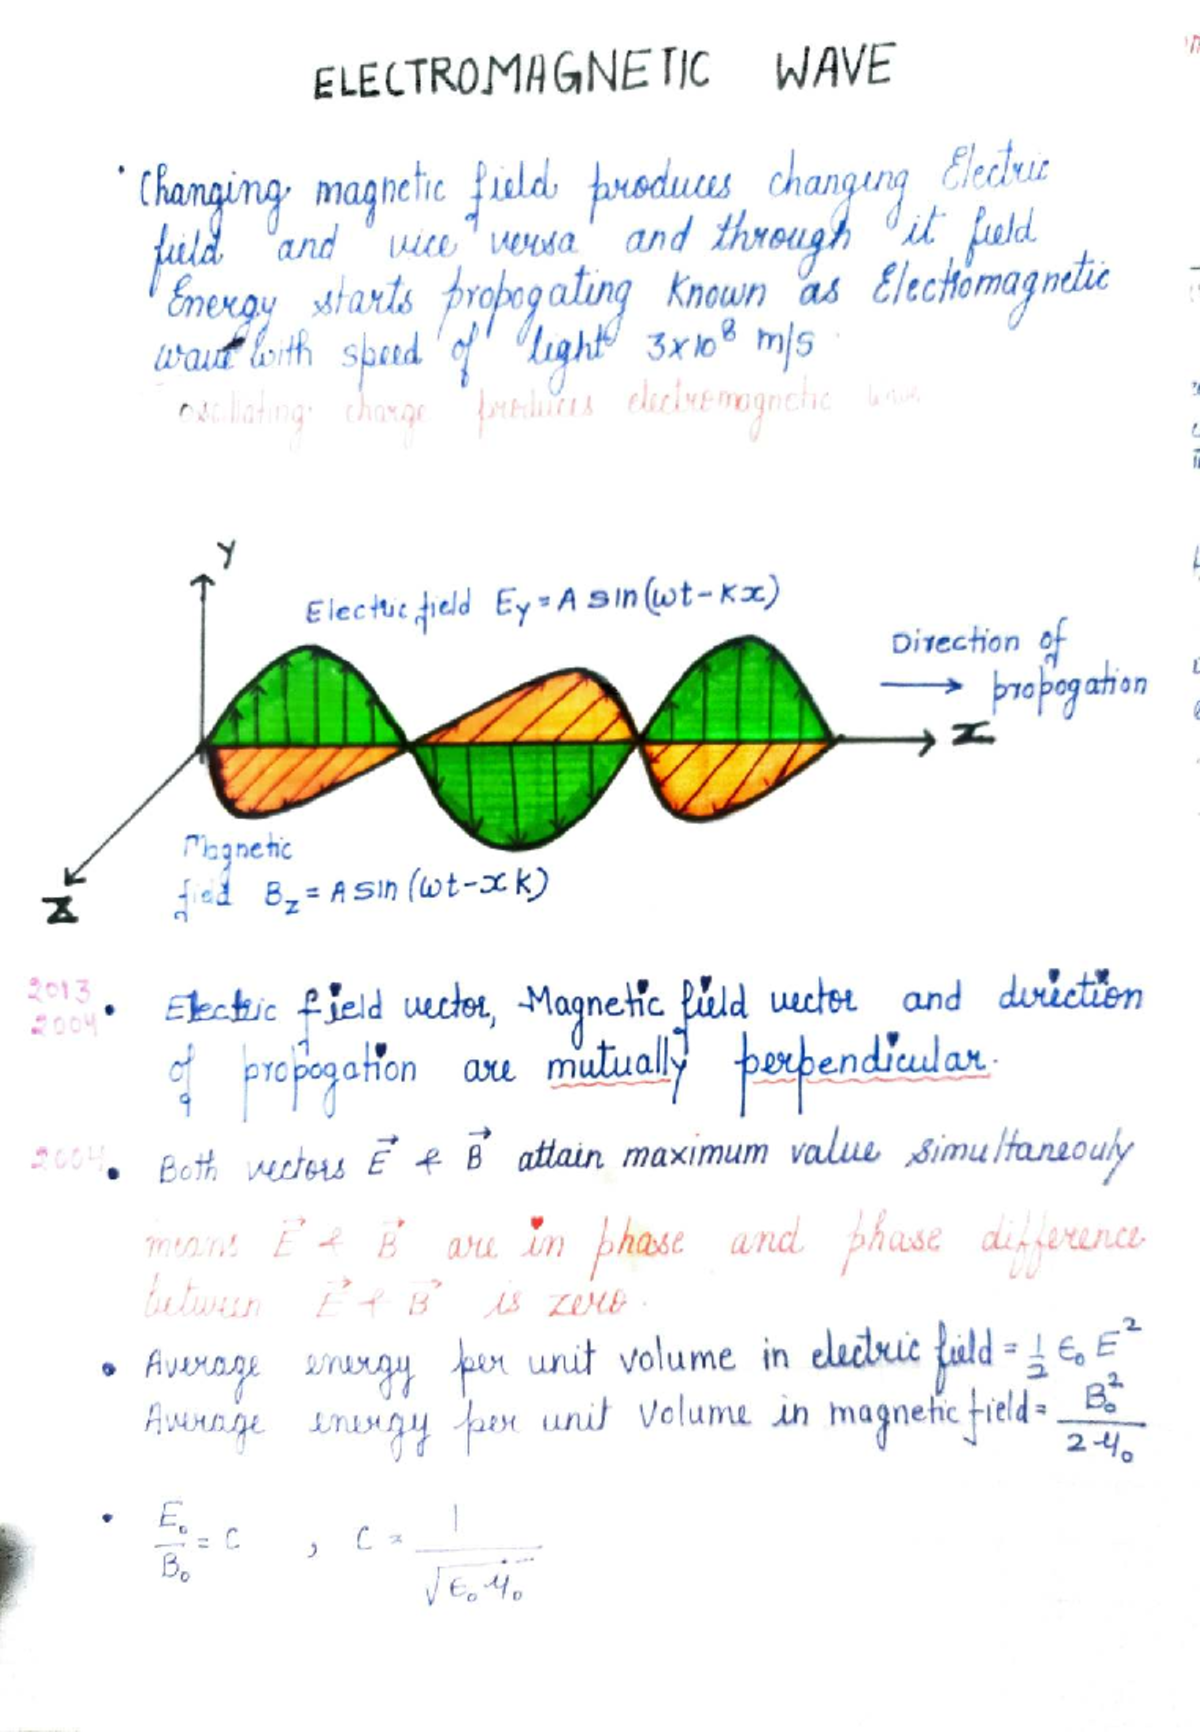 ELECTROMAGNETIC WAVE
• Changing magnetic field produces changing Electric
field and vice versa and through it field
Energy starts propogating Known as Electromagnetic
wave with speed of light 3x10⁸ m/s
oscillating charge produces electromagnetic wave
Y
Electric field E_y = A sin(ωt - Kx)
Direction of
→ propogation
X
Magnetic
field B_z = A sin (ωt - xk)
Z
2013
2004
• Electric field vector, Magnetic field vector and direction
of propogation are mutually perpendicular.
2004
• Both vectors E⃗ & B⃗ attain maximum value simultaneouly
means E⃗ & B⃗ are in phase and phase difference
between E⃗ & B⃗ is zero.
• Average energy per unit volume in electric field = 1/2 ε₀ E²
Average energy per unit Volume in magnetic field = B₀²/2μ₀
• E₀/B₀ = C , C = 1/√ε₀μ₀